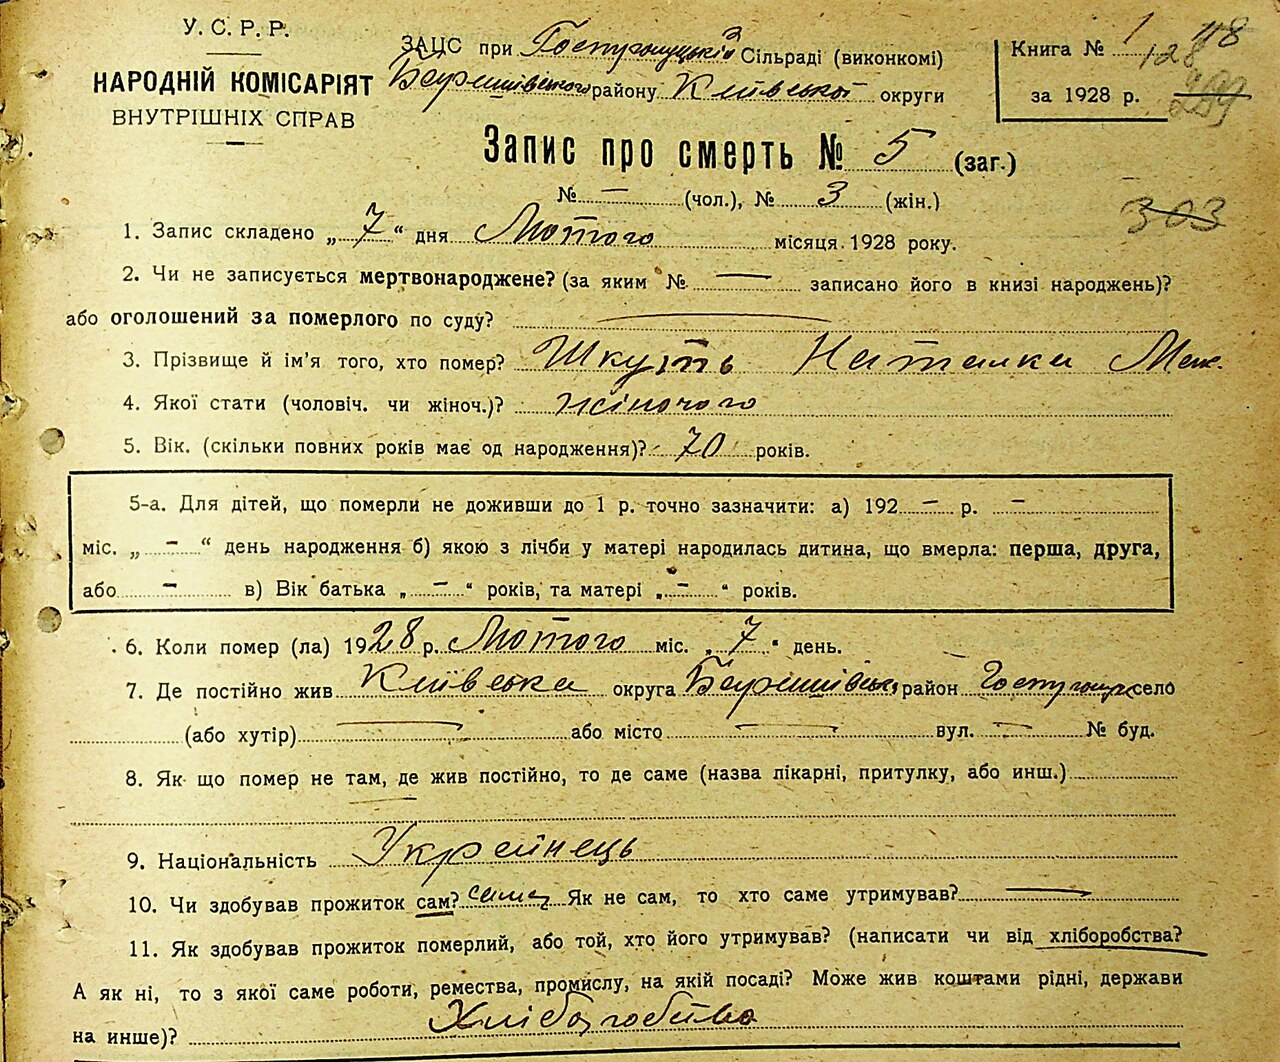 У. С. Р. Р.
НАРОДНІЙ КОМІСАРІЯТ
ВНУТРІШНІХ СПРАВ
ЗАЦС при Сільраді (виконкомі)
району Київської округи
Книга № 1
за 1928 р.
128
118
289
303
Запис про смерть № 5 (заг.)
№ — (чол.), № 3 (жін.)
1. Запис складено „ 7 “ дня Лютого місяця 1928 року.
2. Чи не записується мертвонароджене? (за яким № — записано його в книзі народжень)?
або оголошений за померлого по суду? —
3. Прізвище й ім'я того, хто помер? Шкуть Наталка Мак.
4. Якої стати (чоловіч. чи жіноч.)? жіночого
5. Вік. (скільки повних років має од народження)? 70 років.
5-а. Для дітей, що померли не доживши до 1 р. точно зазначити: а) 192 — р. —
міс. „ — “ день народження б) якою з лічби у матері народилась дитина, що вмерла: перша, друга,
або — в) Вік батька „ — “ років, та матері „ — “ років.
6. Коли помер (ла) 1928 р. Лютого міс. „ 7 “ день.
7. Де постійно жив Київська округа район село
(або хутір) — або місто — вул. — № буд.
8. Як що помер не там, де жив постійно, то де саме (назва лікарні, притулку, або инш.)
—
9. Національність Украйнець
10. Чи здобував прожиток сам? сама Як не сам, то хто саме утримував? —
11. Як здобував прожиток померлий, або той, хто його утримував? (написати чи від хліборобства?
А як ні, то з якої саме роботи, ремества, промислу, на якій посаді? Може жив коштами рідні, держави
на инше)? Хліборобство